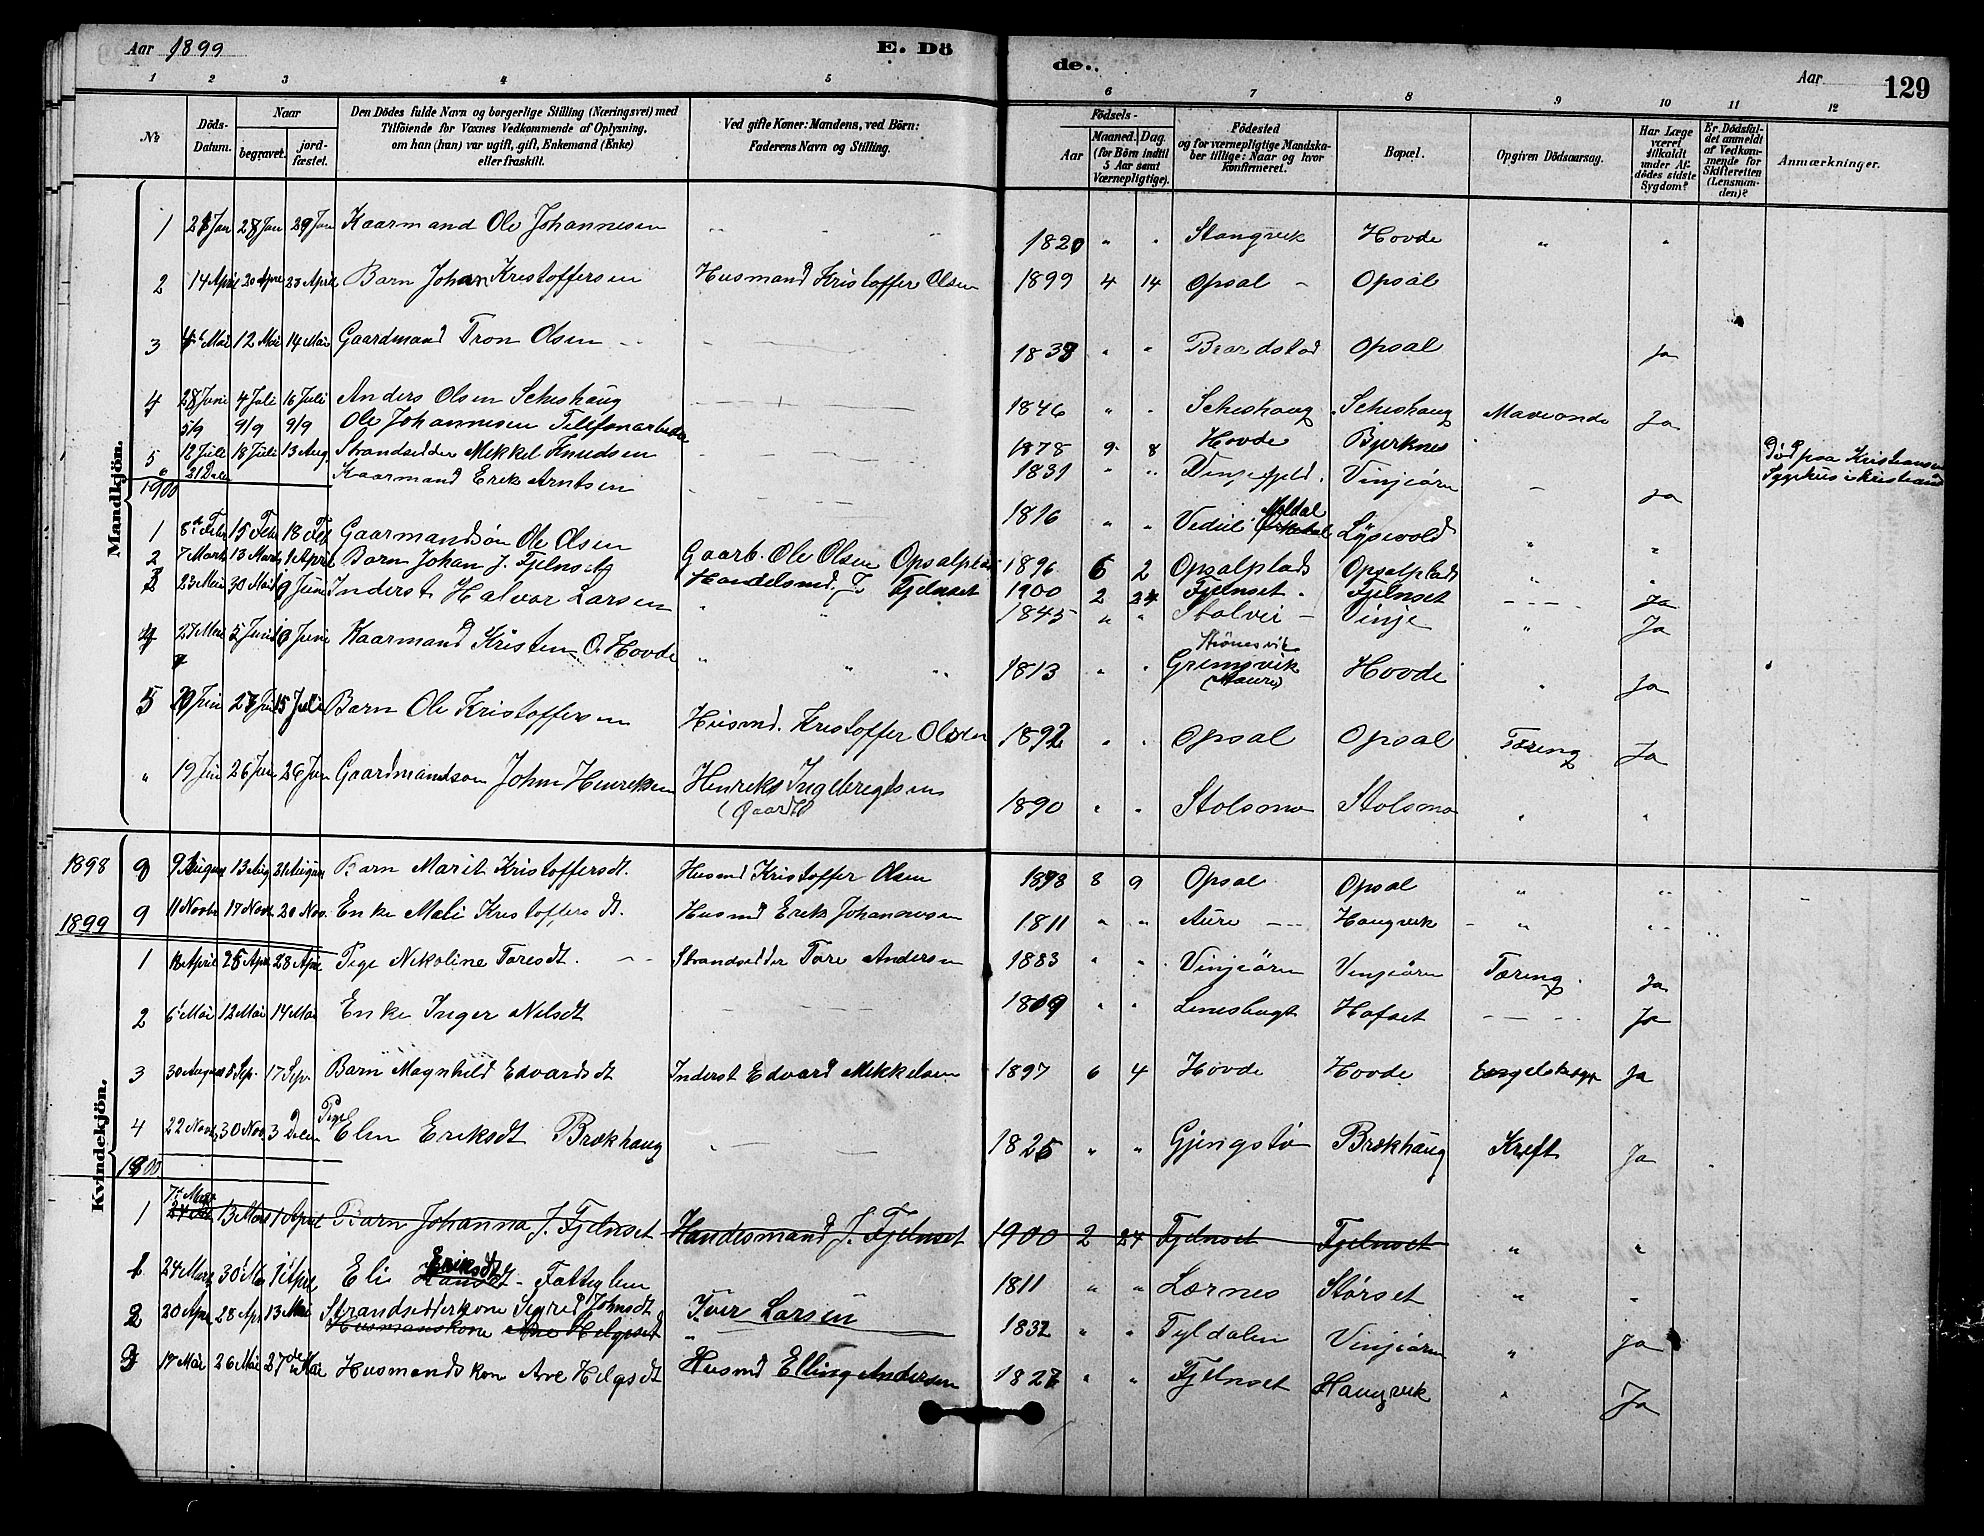 Aar 1899
E. Dö
de.
Aar
129
1 2 3 4 5 6 7 8 9 10 11 12
No
Döds-Datum.
Naar
begravet.
jord-fæstet.
Den Dödes fulde Navn og borgerlige Stilling (Næringsvei) med
Tilföiende for Voxnes Vedkommende af Oplysning,
om han (hun) var ugift, gift, Enkemand (Enke)
eller fraskilt.
Ved gifte Koner: Mandens, ved Börn:
Faderens Navn og Stilling.
Födsels-
Aar
Maaned. Dag.
(for Börn indtil
5 Aar samt
Værnepligtige).
Födested
og for værnepligtige Mandska-
ber tillige: Naar og hvor
konfirmeret.
Bopæl.
Opgiven Dödsaarsag.
Har Læge
været
tilkaldt
under Af-
dödes sidste
Sygdom?
Er Dödsfal-
det anmeldt
af Vedkom-
mende for
Skifteretten
(Lensman-
den)?
Anmærkninger.
Mandkjön.
1 28 Jan 29 Jan Kaarmand Ole Johannesen " " " 1820 " " Stangvik Hovde " "
2 14 April 20 Apri 23 April Barn Johan Kristoffersen Husmand Kristoffer Olsen 1899 4 14 Opsal - Opsal
3 12 Mai 14 Mai Gaardmand Tron Olsen 1838 " " Brandstad Opsal Ja
4 28 Juni 4 Juli 16 Juli Anders Olsen Schishaug 1846 " " Schishaug Schishaug Maveonde Ja
5/9 9/9 9/9 Ole Johannesen Telefonarbeider 1878 9 8 Hovde Bjerknes Död paa Kristiansun
5 12 Juli 18 Juli 13 Aug. Strandsidder Mikkel Knudsen 1831 " " Vinjefjeld. Vinjeörn - Ja Sygehus i Kristians
" 21 Dec Kaarmand Erik Arntsen
1900
1 8de Febr 15 Febr 18 Feb Gaarmandsön Ole Olsen 1816 " " Lysevold " "
2 7 Marts 13 Marts 1 April Barn Johan J. Fjelnset Gaarb. Ole Olsen Opsalplads 1896 6 2 Opsalplads Opsalplads "
3 23 Mai 30 Mai 9 Juni Inderst Halvor Larsen Handelsmd. J. Fjelnset 1900 2 24 Fjelnset. Fjelnset Ja
" " 1845 " " Stolvei - Vinje " Ja
4 27 Mai 5 Juni Juni Kaarmand Kristen O. Hovde " " " 1813 " " Strömsvik Grimsvik (Aure) Hovde " Ja
5 Juni 15 Juli Barn Ole Kristoffersen Husmd. Kristoffer Olsen 1892 " " Opsal Opsal Tæring Ja
" 19 Jun 26 Jun 26 Jun Gaardmandsön John Henriksen Henriks Ingebregtsen (Gaardb) 1890 " " Stolsmo Stolsmo " "
Kvindekjön.
1898
8 9 August 13 Aug 21 August Barn Marit Kristoffersdt. Husmd Kristoffer Olsen 1898 8 9 Opsal Opsal " "
9 11 Novbr 17 Novb 20 Nov. Enke Mali Kristoffersdt. Husmd Erik Johannesen 1811 " " Aure Haugvik " "
1899
1 18 April 25 Apr. 28 Apr. Pige Nikoline Toresdt. Strandsidder Tore Andersen 1883 " " Vinjeörn Vinjeörn Tæring. Ja
2 6 Mai 12 Mai 14 Mai Enke Inger Nilsdt 1809 " " Lenesbugt Hafset Ja
3 30 August 8 Sep. 17 Sep. Barn Magnhild Edvardsdt Inderst Edvard Mikkelsen 1897 6 4 Hovde Hovde Engelsksyge Ja
4 22 Novb 30 Nov. 3 Decbr Pige Elen Eriksdt Brækhaug 1825 " " Gjengstö Brækhaug Kreft Ja
1900
1 7de Mars 13 Mars 1 April Barn Johanna J. Fjelnset Handesmand J. Fjelnset 1900 2 24 Fjelnset Fjelnset " "
1 24 Mars 30 Ma 1 April Eli Eriksdt - Fattiglem 1811 " " Lærnes Störset " "
2 20 Apr. 28 Apr 13 Mai Strandsidderkone Sigrid Johnsdt Iver Larsen 1832 " " Tyldalen Vinjeörn " Ja
Husmandskone Ane Helgesdt "
3 17 Mai 26 Mai 27de Mai Husmandskon Ane Helgsdt Husmd Elling Andersen 1827 " " Fjelnset Haugvik " Ja